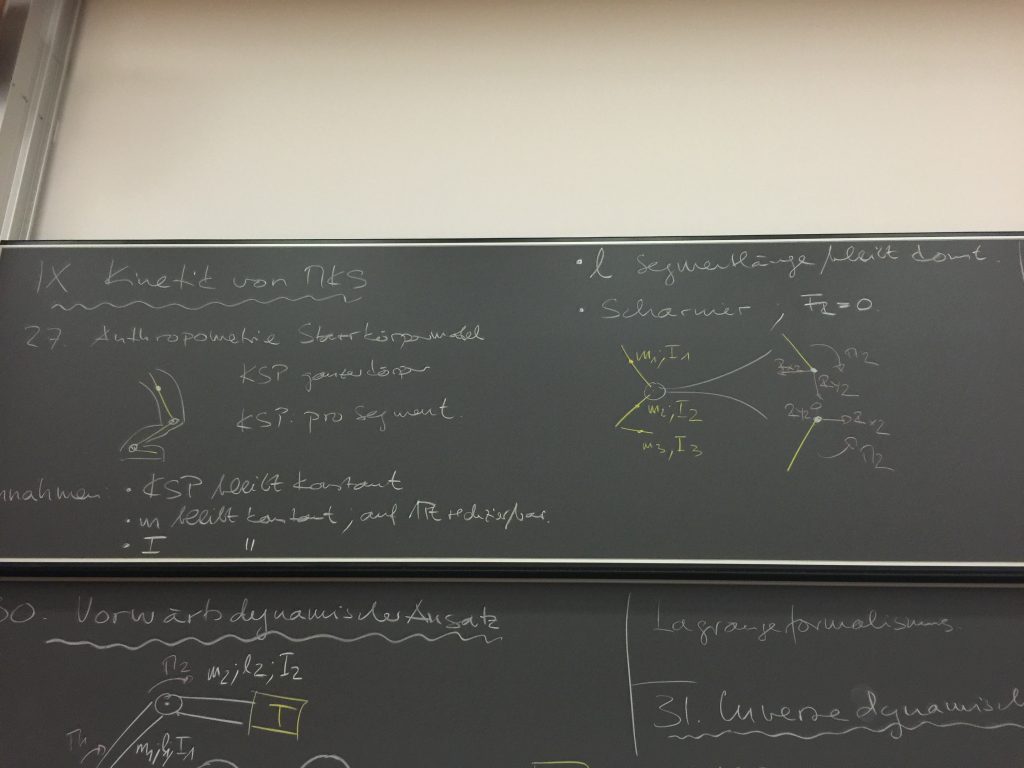 IX Kinetik von MKS
27. Anthropometrie Starrkörpermodell
KSP ganzer Körper
KSP pro Segment.
nnahmen: • KSP bleibt konstant
• m bleibt konstant; auf reduzierbar.
• I "
• l Segmentlänge bleibt const.
• Scharnier ; Fz = 0.
m1; I1
m2; I2
m3; I3
M2
M2
30. Vorwärtsdynamischer Ansatz
M2 m2; l2; I2
T
m1; l1; I1
Lagrangeformalismus.
31. Inverse dynamisch